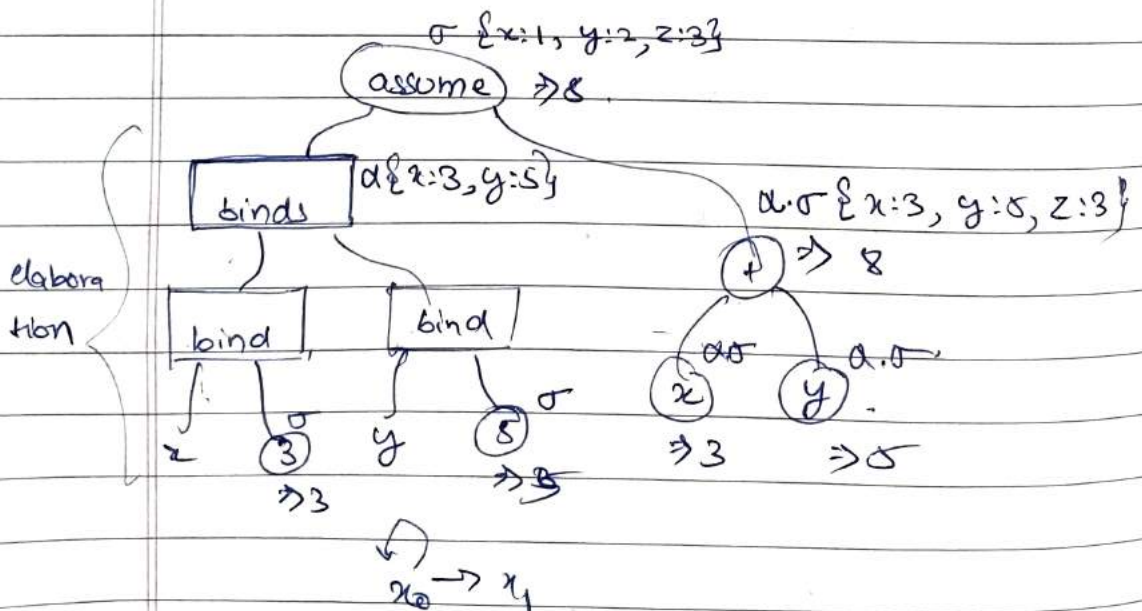 σ {x:1, y:2, z:3}
assume ⇒ 8
binds α{x:3, y:5}
α·σ {x:3, y:5, z:3}
+ ⇒ 8
elabora
tion
bind bind
x α·σ y α·σ
x 3 σ y 5 σ
⇒3 ⇒5 ⇒3 ⇒5
x₀ → x₁